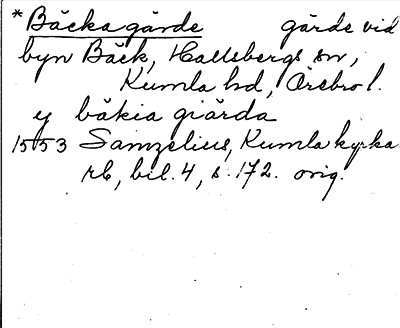 *Bäckagärde gärde vid
byn Bäck, Hallsbergs sn,
Kumla hd, Örebro l.
ej bäkia giärda
1553 Samzelius, Kumla kyrka
rb, bil. 4, s. 172. orig.